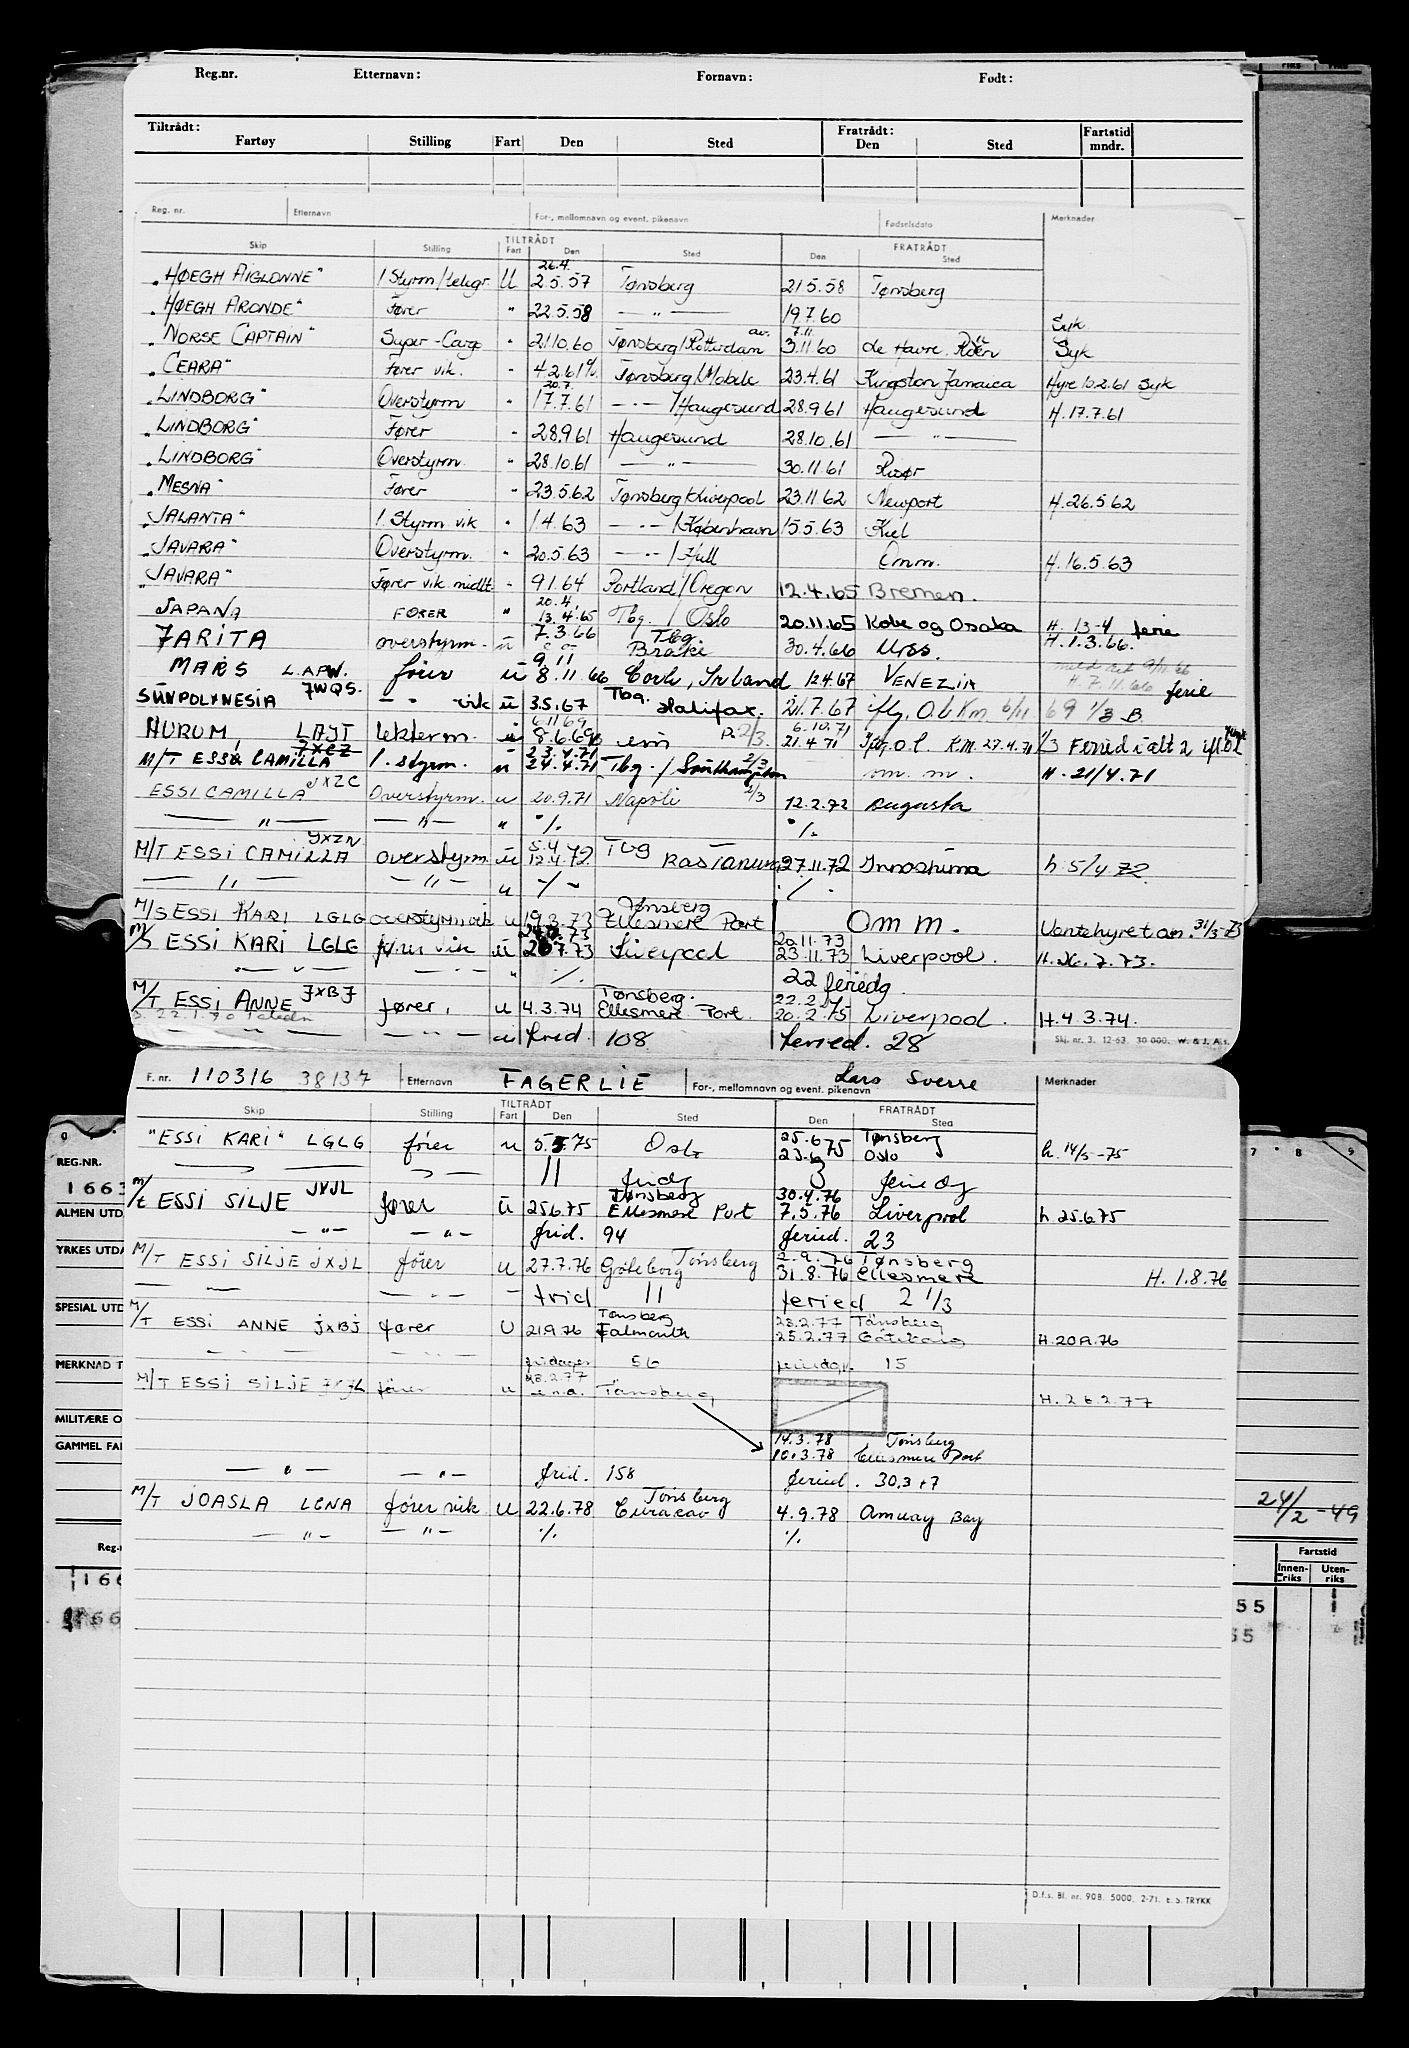 Reg.nr. Etternavn: Fornavn: Født:
Tiltrådt: Fratrådt: Fartstid
Fartøy Stilling Fart Den Sted Den Sted mndr.
Reg. nr. Etternavn For-, mellomnavn og event, pikenavn Fødselsdato Merknader
TILTRÅDT FRATRÅDT
Skip Stilling Fart Den Sted Den Sted
26.4.
"HØEGH AIGLONNE" 1 Styrm/telegr. U 2.5.57 Tønsberg 21.5.58 Tønsberg
"HØEGH ARONDE" Fører " 22.5.58 — " — 19.7.60 Syk
av. 7.11
"NORSE CAPTAIN" Super-Cargo " 21.10.60 Tønsberg/Rotterdam 3.11.60 de Havre. Syk
"CEARA" Fører vik. " 4.2.61 Tønsberg/Mobile 23.4.61 Kingston Jamaica Hyre 10.2.61 Syk
20.7.
"LINDBORG" Overstyrm " 17.7.61 — " — /Haugesund 28.9.61 Haugesund H. 17.7.61
"LINDBORG" Fører " 28.9.61 Haugesund 28.10.61 — " —
"LINDBORG" Overstyrm. " 28.10.61 — " — 30.11.61 Risør
"MESNA" Fører " 23.5.62 Tønsberg/Liverpool 23.11.62 Newport H. 26.5.62
"JALANTA" 1. Styrm vik " 1.4.63 — " — /København 15.5.63 Kiel
"JAVARA" Overstyrm. " 20.5.63 — " — /Hull Omm. H. 16.5.63
"JAVARA" Fører vik. midlt. " 9.1.64 Portland/Oregon 12.4.65 Bremen.
20.4.
JAPANA FØRER " 13.4.65 Tbg. / Oslo 20.11.65 Kobe og Osaka H. 13-4 ferie
JARITA overstyrm. u 7.3.66 Tbg. / Brake 30.4.66 Urss. H. 1.3.66.
9 11
MARS LAPW. fører u 8.11.66 Cork, Irland 12.4.67 VENEZIA H. 7.11.66 ferie
SUNPOLYNESIA JWQS. — " — vik u 3.5.67 Tbg. Halifax. 21.7.67
6.11.69 6.10.71
HURUM, LAJT lekterm. u 8.6.69 21.4.71 KM. 27.4.71
23.4.71 2/3
M/T ESSI CAMILLA JXCZ 1. styrm. u 24.4.71 Tbg. / Southampton om. m. H. 21/4.71
ESSI CAMILLA JXZC Overstyrm. u 20.9.71 Napoli 2/3 12.2.72 Augusta
— " — — " — " % %
JXZN 5.4
M/T ESSI CAMILLA overstyrm. u 12.4.72. Tbg RASTANURA 27.11.72 Innoshima h. 5/4 72
— " — — " — u
Tønsberg
M/S ESSI KARI LGLG overstyrm vik u 19.3.73 Ellesmere Port Omm. Ventehyret an. 31/3-73
20.11.73
M/S ESSI KARI LGLG fører vik u 26.7.73 Liverpool 23.11.73 Liverpool. H. 26.7.73.
— " — — " — " % 22 feriedg.
Tønsberg. 22.2.75
M/T ESSI ANNE JXBJ fører. u 4.3.74 Ellesmere Port. 20.2.75 Liverpool. H. 4.3.74.
— " — — " — u frid. 108 feried. 28
Skj. nr. 3. 12-63. 30 000. W. & J. A/s.
F. nr. 110316 38137 Etternavn FAGERLIE For-, mellomnavn og event. pikenavn Lars Sverre Merknader
TILTRÅDT FRATRÅDT
Skip Stilling Fart Den Sted Den Sted
25.6.75 Tønsberg
"ESSI KARI" LGLG fører u 5.5.75 Oslo 23.6 Oslo h. 14/5-75
11 fridg 3 ferie dg
Tønsberg 30.4.76
M/t ESSI SILJE JXJL fører u 25.6.75 Ellesmere Port 7.5.76 Liverpool h 25.6.75
— " — — " — frid. 94 feried. 23
Tønsberg 2.9.76 Tønsberg
M/T ESSI SILJE JXJL fører u 27.7.76 Göteborg 31.8.76 Ellesmere H. 1.8.76
— — " — frid 11 feried 2 1/3
Tønsberg 28.2.77 Tønsberg
M/T ESSI ANNE JXBJ fører U 21.9.76 Falmouth 25.2.77 Göteborg H. 20.9.76
fridager 56 feriedg. 15
M/T ESSI SILJE JXJL fører u Tønsberg H. 26.2.77
14.3.78 Tønsberg
10.3.78 Ellesmere Port
— " — — " — frid. 158 feried. 30,3 + 7
Tønsberg
M/T JOASLA LCNA fører vik U 22.6.78 Curacao 4.9.78 Amuay Bay
— " — — " — % %
D.f.s. Bl. nr. 90B. 5000. 2-71. E. S. TRYKK
REG.NR.
1663
ALMEN UTD
YRKES UTD
SPESIAL UTD
MERKNAD T
MILITÆRE O
GAMMEL FA
7 8 9
24/2-49
Fartstid
Innen-riks Uten-riks
Reg.n
166 55
166 55